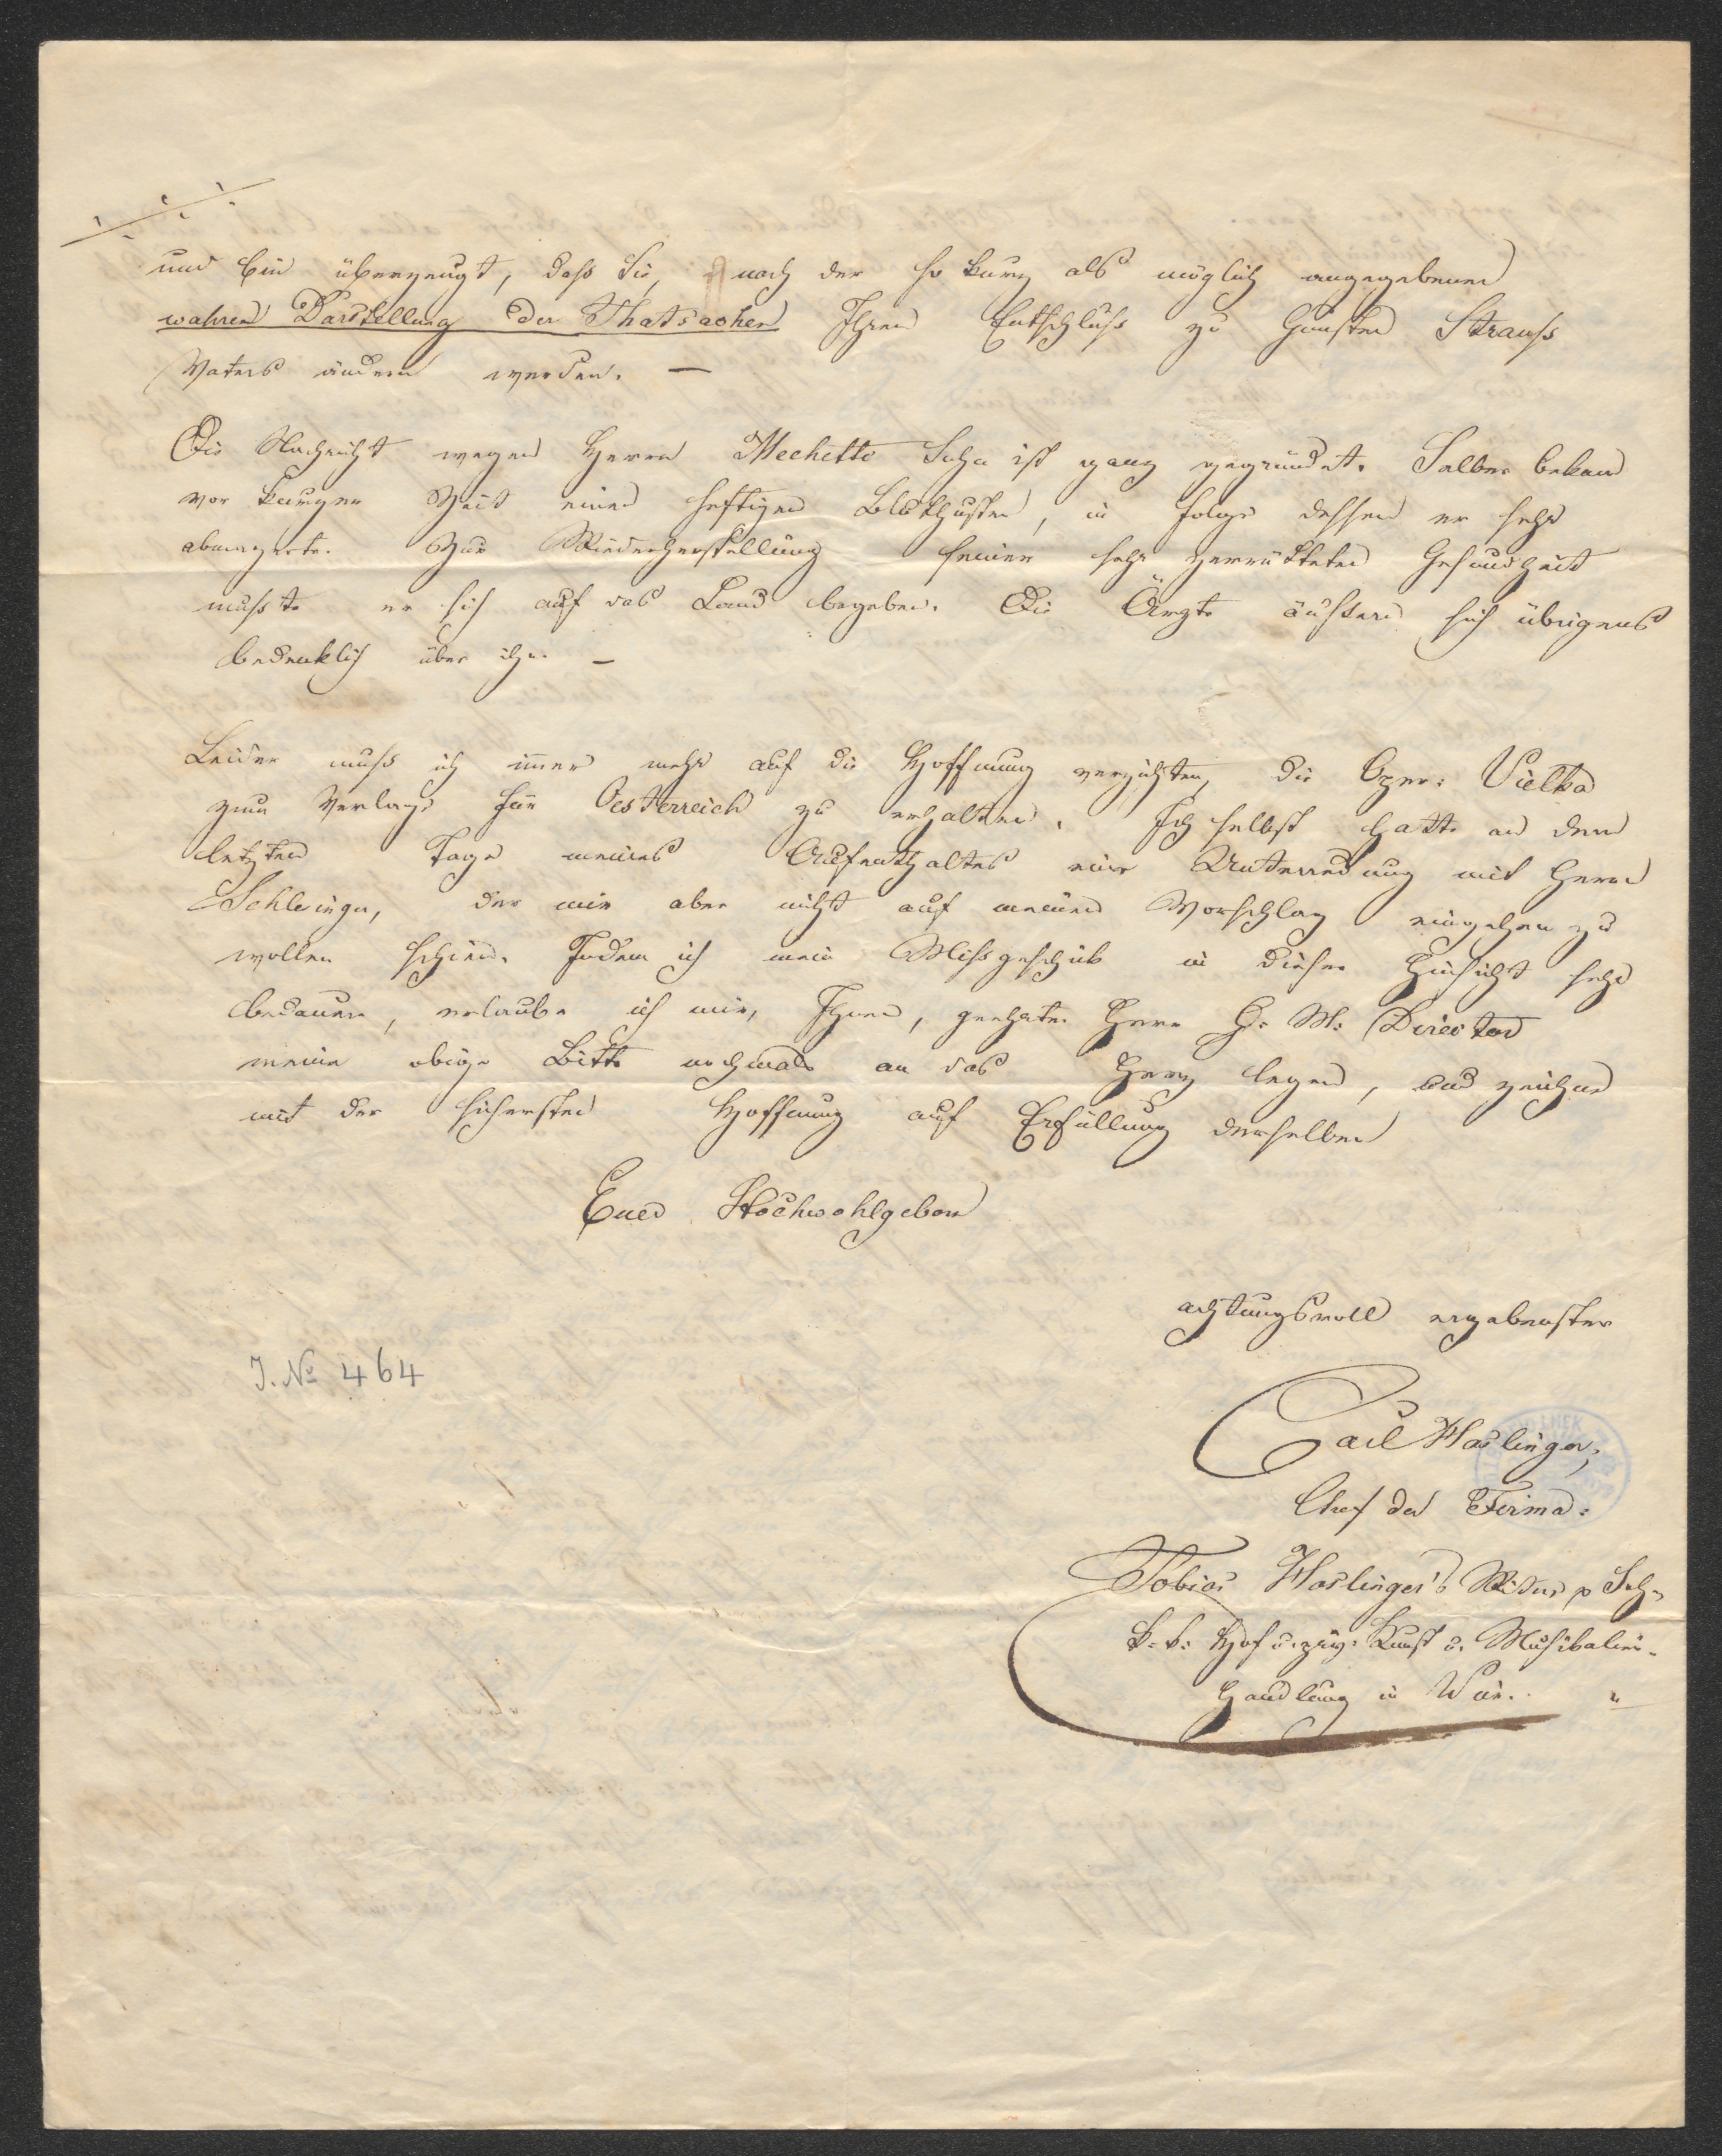 und bin überzeugt, daß Sie, nach der so kurz als möglich angegebenen
wahren Darstellung der Thatsachen Ihren Entschluß zu Gunsten Strauß
Vaters ändern werden. —
Die Nachricht wegen Herrn Mechetti Sohn ist ganz gegründet. Selber bekam
vor kurzer Zeit einen heftigen Bluthusten, in Folge dessen er sehr
abmagerte. Zur Wiederherstellung seiner sehr zerrütteten Gesundheit
mußte er sich auf das Land begeben. Die Ärzte äußern sich übrigens
bedenklich über ihn —
Leider muß ich im̅er mehr auf die Hoffnung verzichten, die Oper: Vielka
zum Verlage für Oesterreich zu erhalten. Ich selbst hatte an dem
letzten Tage meines Aufenthaltes eine Unterredung mit Herrn
Schlesinger, der mir aber nicht auf meinen Vorschlag eingehen zu
wollen schien. Indem ich mein Mißgeschick in dieser Hinsicht sehr
bedauere, erlaube ich mir, Ihnen, geehrter Herr G. M. Director
meine obige Bitte nochmals an das Herz legen, und zeichne
mit der sichersten Hoffnung auf Erfüllung derselben
Euer Hochwohlgeborn
achtungsvoll ergebenster
J. No 464
Carl Haslinger,
Chef der Firma:
Tobias Haslinger's Witwe & Sohn
k. k. Hof u. priv: Kunst u. Musikalien-
Handlung in Wien.